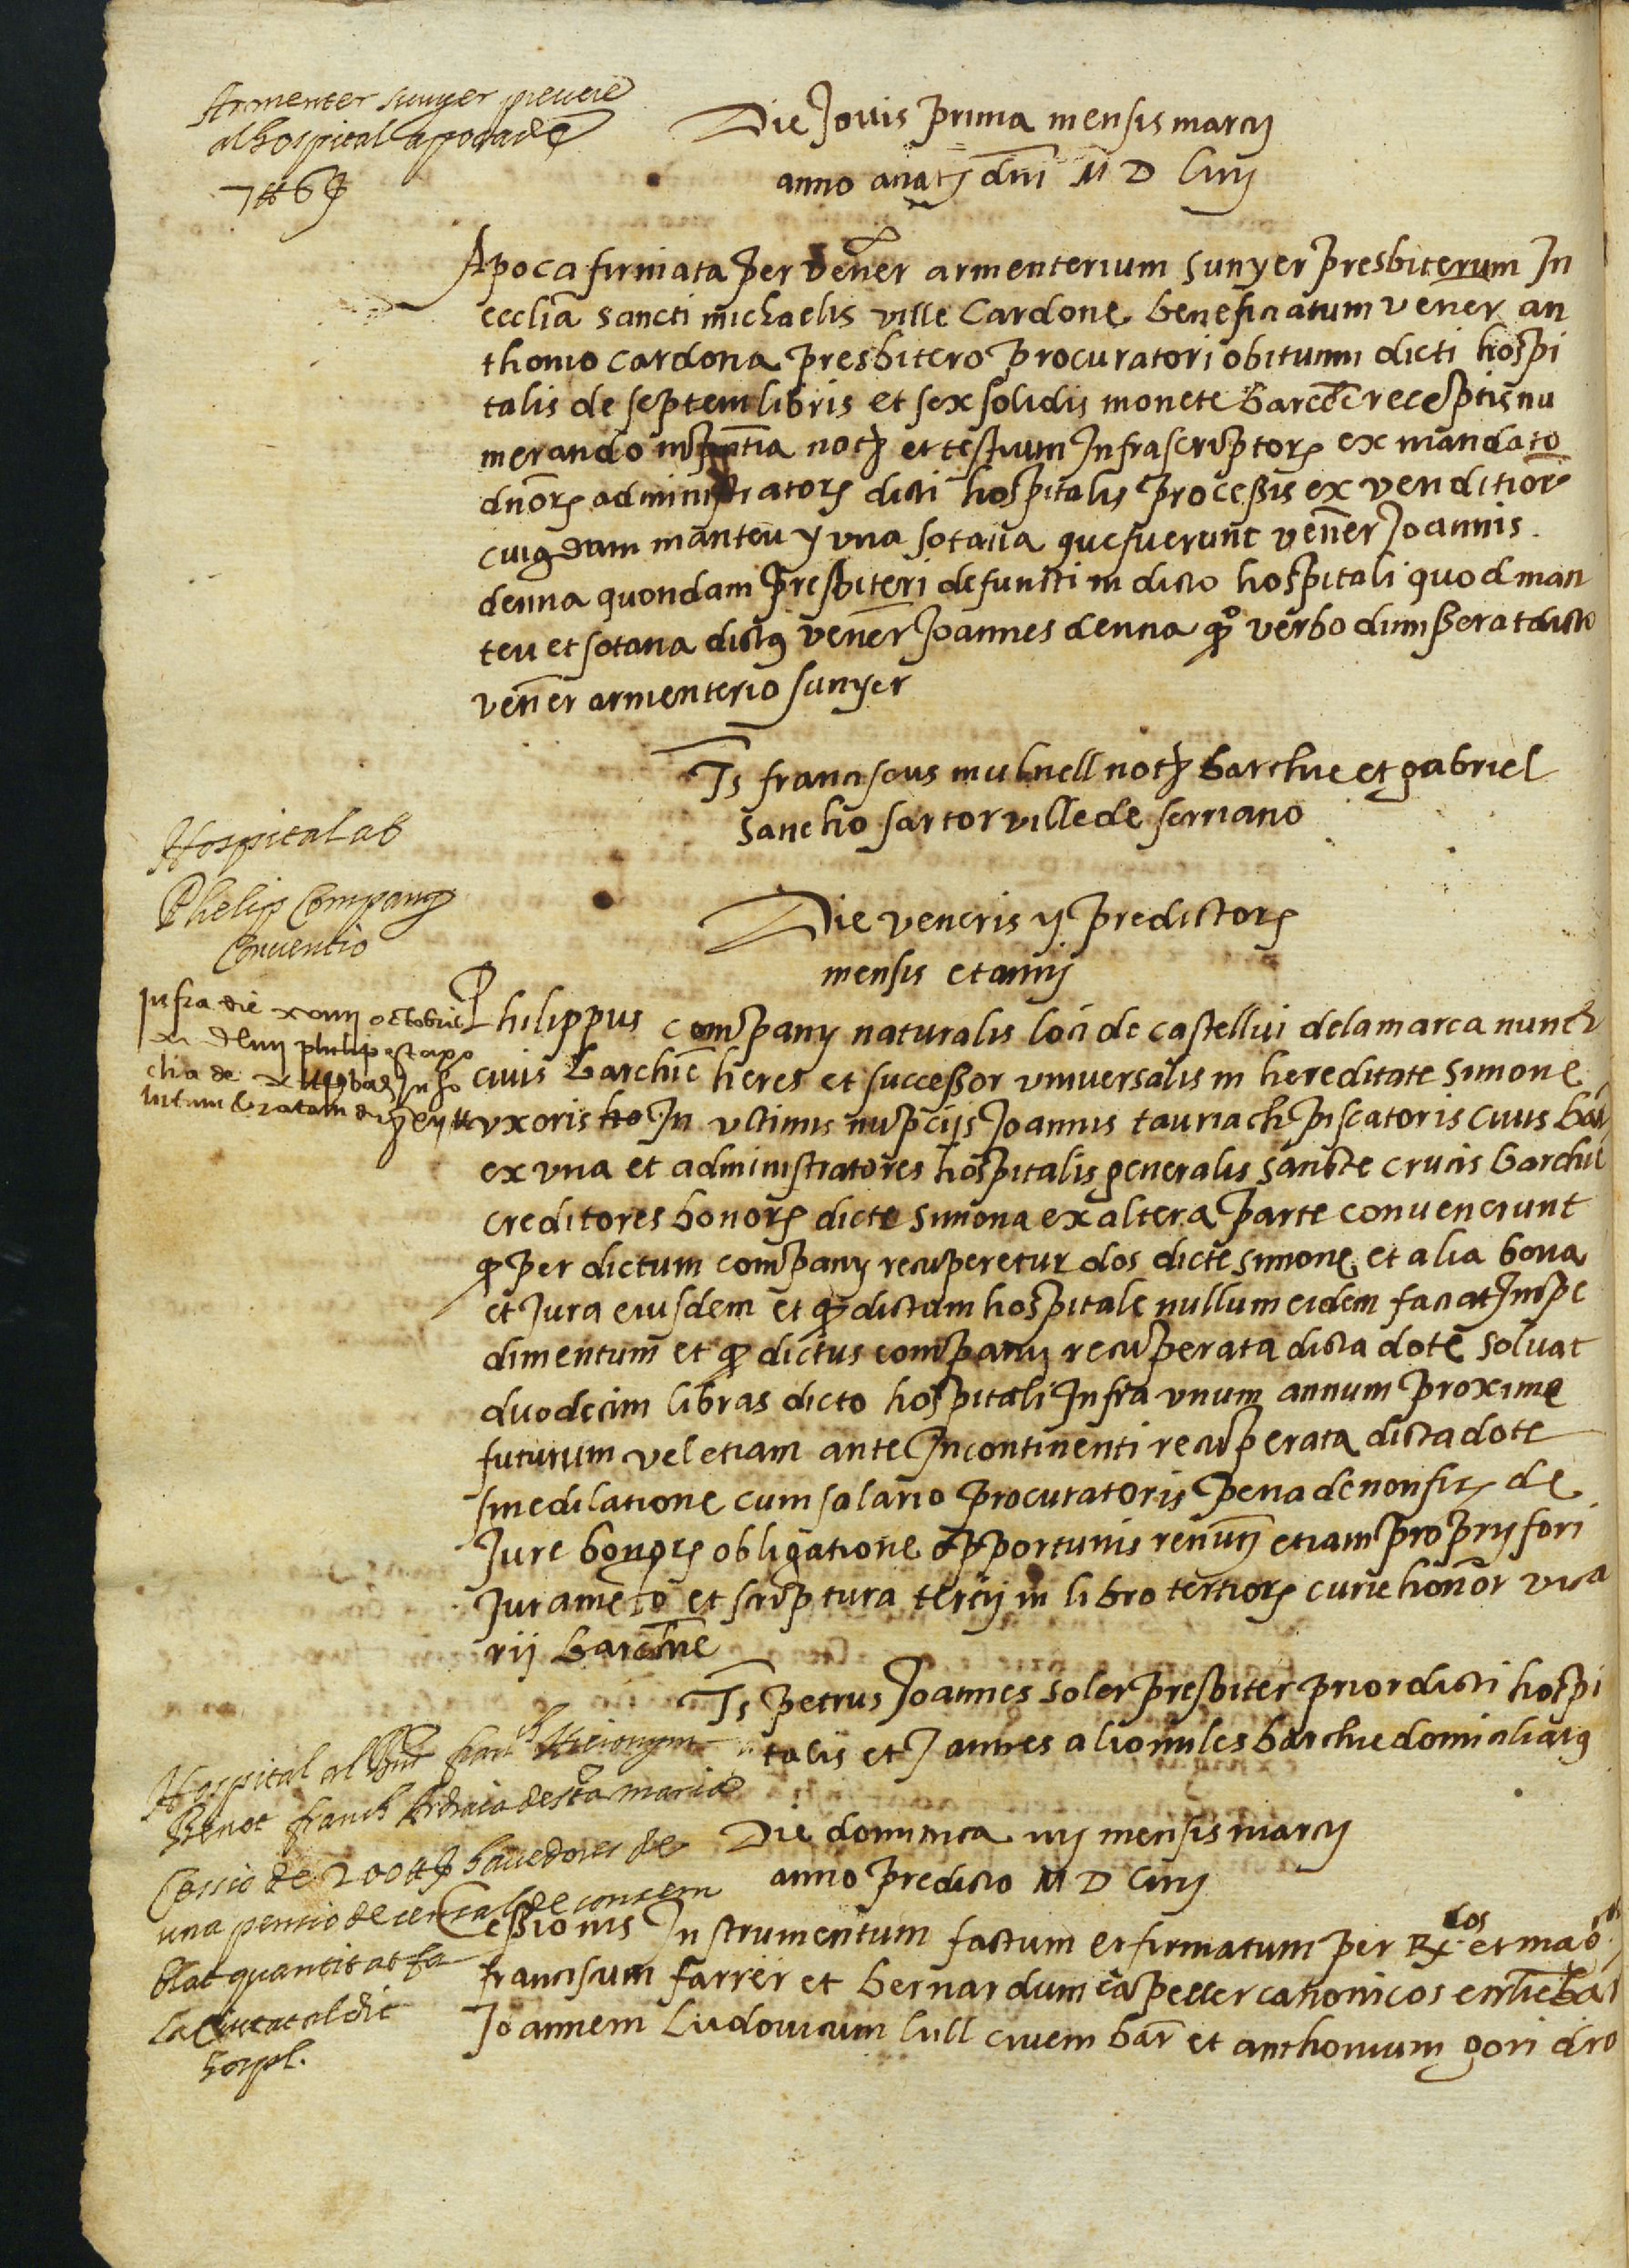 Armenter sunyer prevere
al hospital apoca de
7 ll 6 s
Die Jovis prima mensis marcij
anno a natj dni M D Liiij
Apoca firmata per vener armenterium sunyer presbiterum In
ecclia sancti michaelis ville Cardone beneficiatum vener an
thonio cardona presbitero procuratori obituum dicti hospi
talis de septem libris et sex solidis monete barcće receptis nu
merando in pńtia notj et testium Infrascriptor ex mandato
dnor administrator dicti hospitalis processis ex venditione
cuiqdam manteu y una sotana que fuerunt vener Joannis
denna quondam presbiteri defuncti in dicto hospitali quod man
teu et sotana dictus vener Joannes denna qo verbo dimisserat dicto
vener armenterio sunyer
Ts franciscus mulnell notj barchne et gabriel
sanchio sartor ville de serriano
Hospital ab
Phelip Company
Conventio
Die veneris ij predictor
mensis et annj
Infra die xviiij octobris
Philippus company naturalis loci de castellvi de la marca nunc
civis barchne heres et successor universalis in hereditate simone
uxoris ho In ultimis nupcijs Joannis tauriach piscatoris civis bar
ex una et administratores hospitalis generalis sancte crucis barchne
creditores bonor dicte simona ex altera parte convenerunt
q per dictum company recuperetur dos dicte simone et alia bona
et Jura eiusdem et q dictam hospitale nullum eidem faciat Impe
dimentum et q dictus company recuperata dicta dote solvat
duodecim libras dicto hospitali Infra unum annum proxime
futurum vel etiam ante Incontinenti recuperata dicta dote
sine dilatione cum salario procuratoris pena de non fir de
Jure bonor obligatione opportunis renuntj etiam proprij fori
Juramēto et scriptura tercij in libro tertior curie honor vica
rij barchne
Ts petrus Joannes soler presbiter prior dicti hospi
talis et Joannes alio miles barchne domiciliatus
Hospital al
franch Ardiaca de sta maria
Cessio de 200 ll s havedores de
una pencio de censal de consem
blat quantitat fa
la Ciutat al dit
hospl.
Die dominica iiij mensis marcij
anno predicto M D Liiij
Cessionis Instrumentum factum et firmatum per Rx dos et mag
franciscum farrer et bernardum capeller canonicos ecclie bar
Joannem Ludovicum lull civem bar et anthonium gori dro